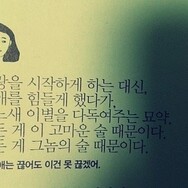 랑을 시작하게 하는 대신,
애를 힘들게 했다가,
느새 이별을 다독여주는 묘약.
든 게 이 고마운 술 때문이다.
든 게 그놈의 술 때문이다.
애는 끊어도 이건 못 끊겠어.